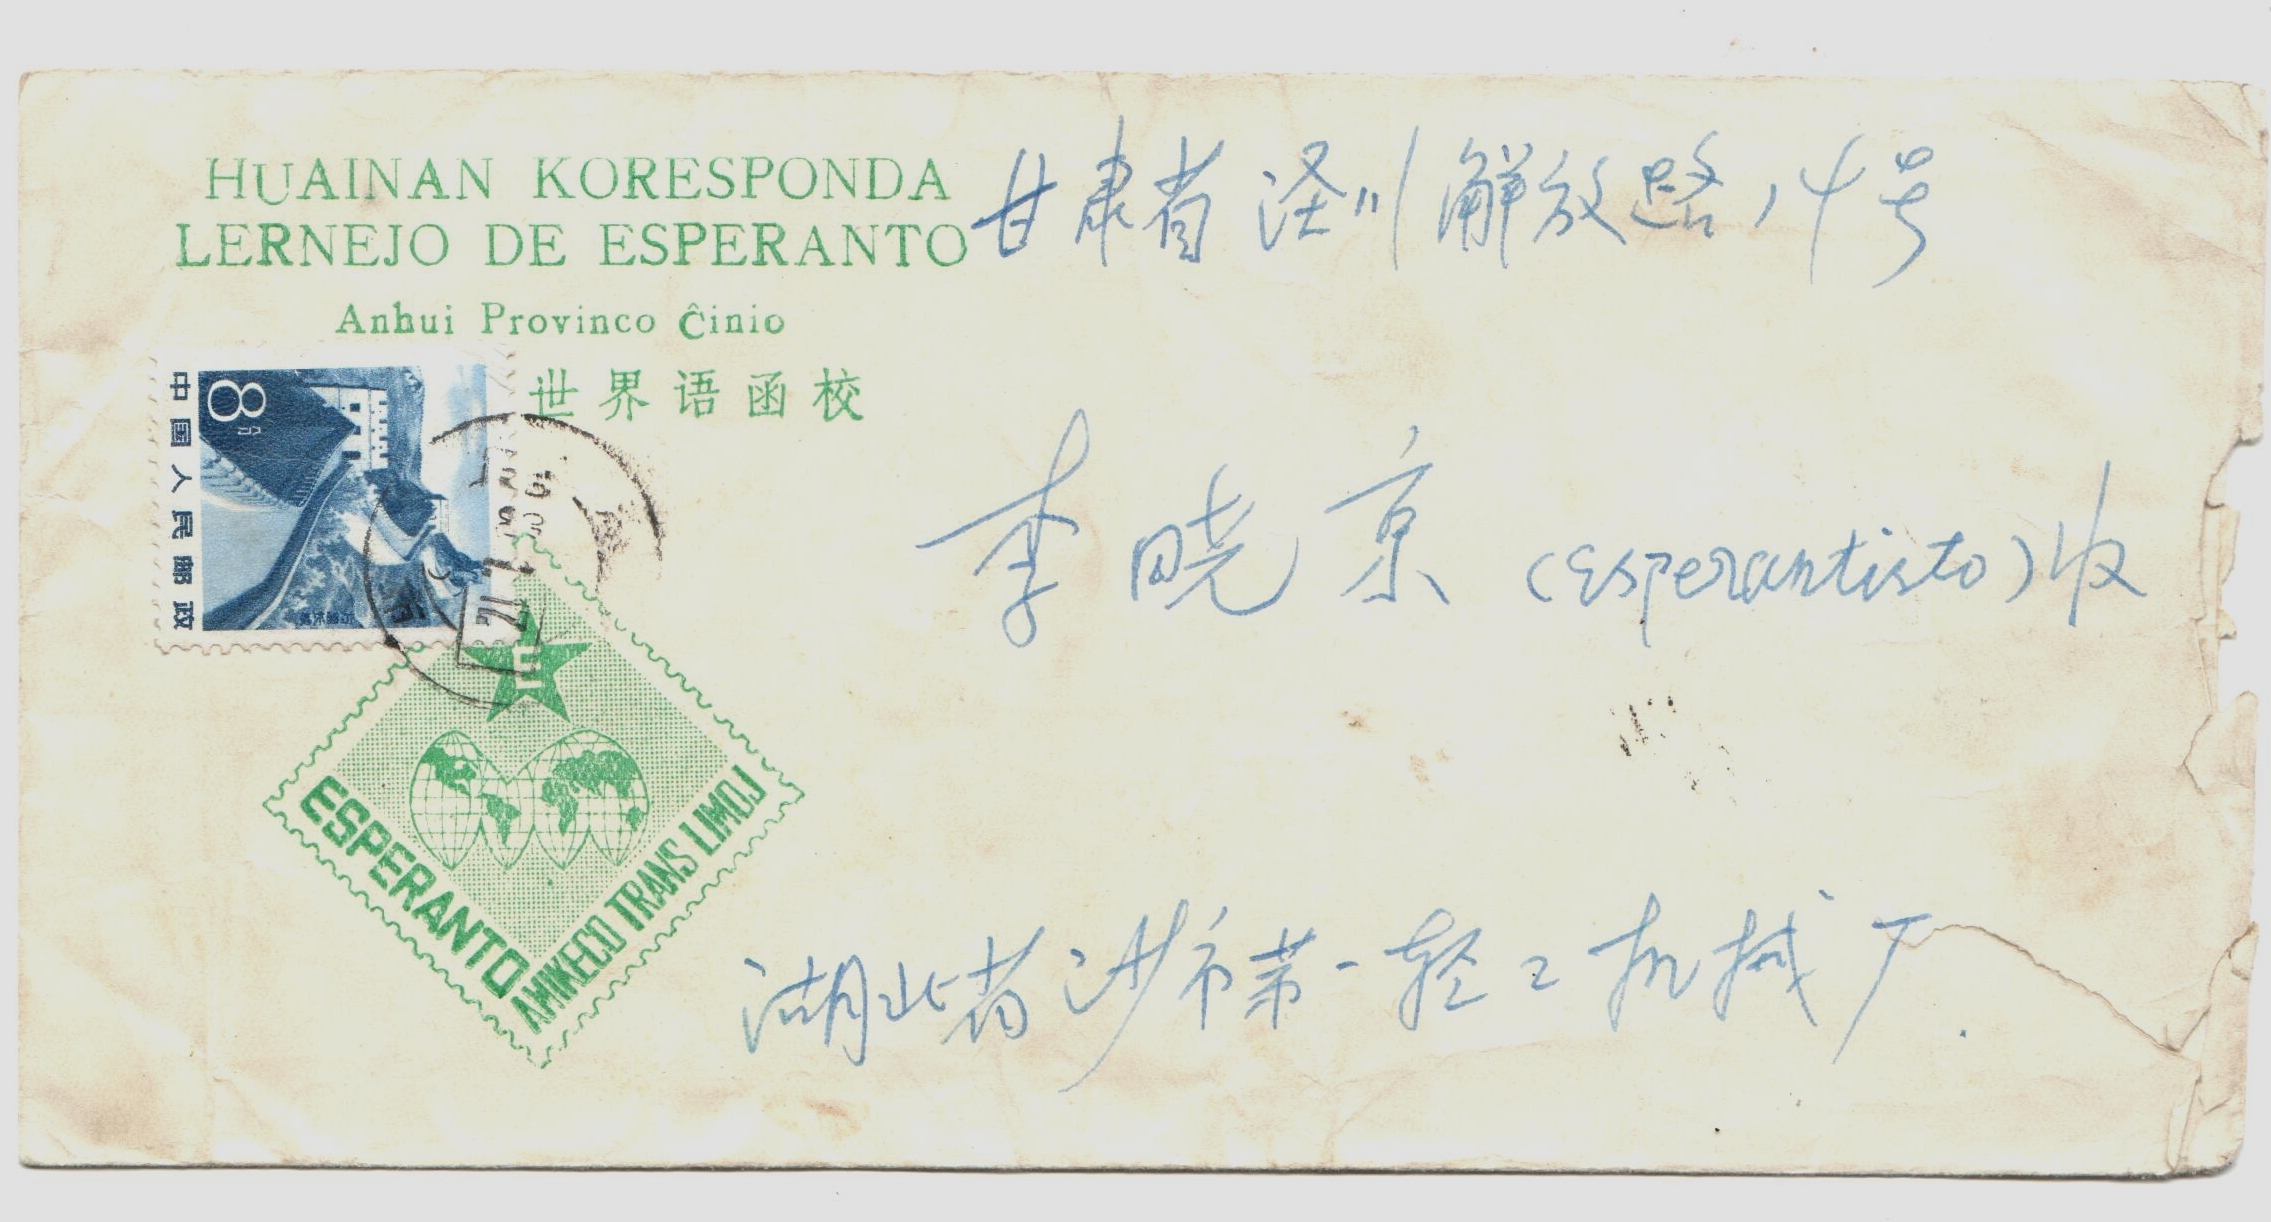 HUAINAN KORESPONDA
LERNEJO DE ESPERANTO
Anhui Provinco Ĉinio
世界语函校
甘肃省泾川解放路14号
8分
中国人民邮政
李晓京(esperantisto)收
E
ESPERANTO
AMIKECO TRANS LIMOJ
湖北省沙市第一轻工机械厂.